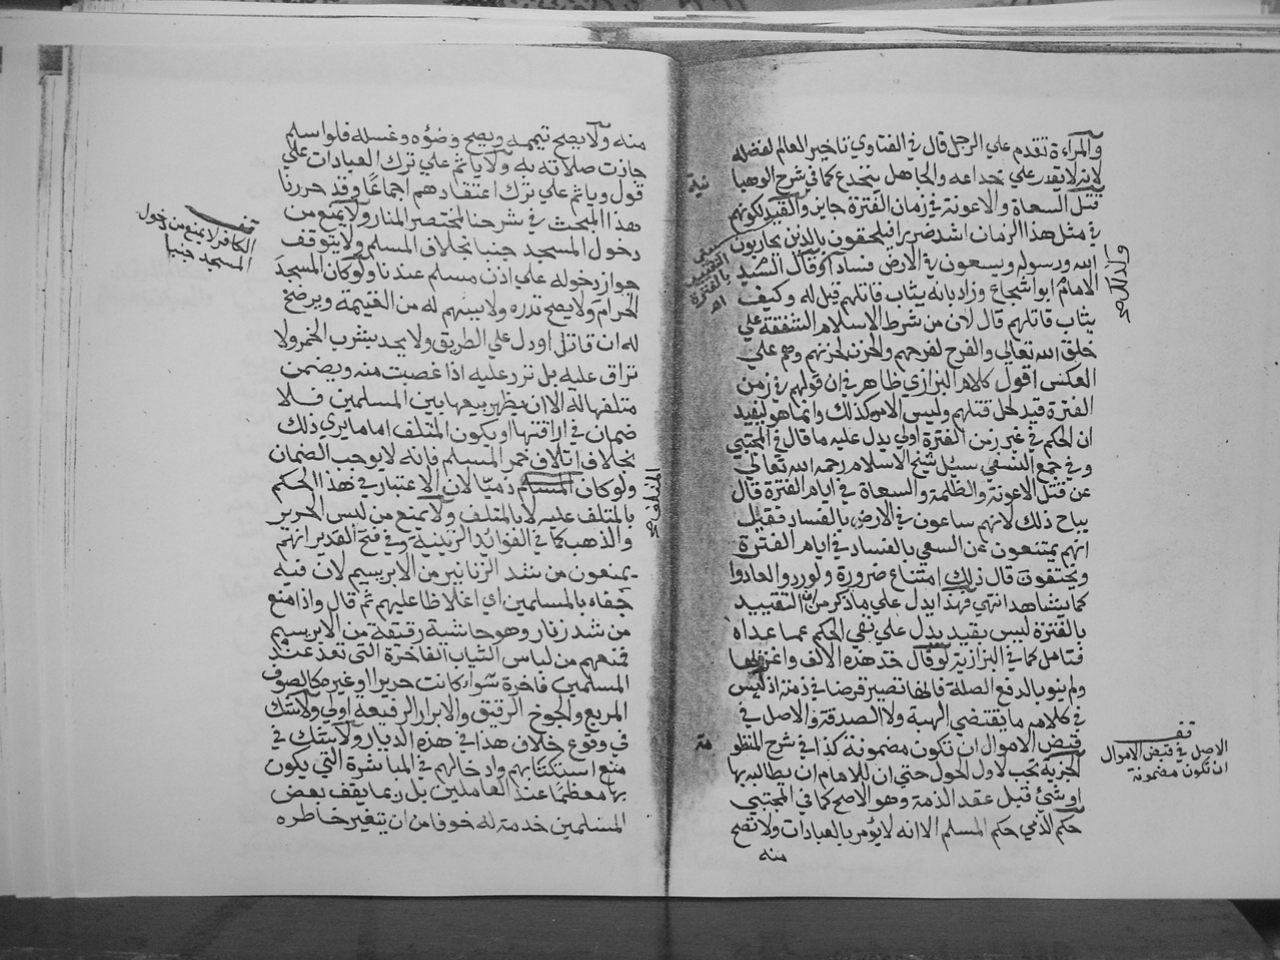 والمرأة تقدم علي الرجل قال في الفتاوي تاخير العالم لفضله
لانه لا يقدر علي خداعه والجاهل ينخدع كما في شرح الوهبا
نية
قتل السعاة والاعونة في زمان الفترة جايز والقيد لكونهم
في مثل هذا الزمان اشد ضررا فيلحقون بالذين يحاربون
يعني التقييد بالفترة اه
الله ورسوله ويسعون في الارض فسادا وقال السيد
الامام ابو شجاع وزاد بانه يثاب قاتلهم قيل له وكيف
يثاب قاتلهم قال لان من شرط الاسلام الشفقة علي
خلق الله تعالي والفرح لفرحهم والحزن لحزنهم وهم علي
العكس اقول كلام البزازي ظاهر في ان قولهم في زمن
الفترة قيد لحل قتلهم وليس الامر كذلك وانما هو ليفيد
ان الحكم في غير زمن الفترة اولي يدل عليه ما قال في المجتبي
وفي جمع النسفي سيل شيخ الاسلام رحمه الله تعالي
عن قتل الاعونة والظلمة والسعاة في ايام الفترة قال
يباح ذلك لانهم ساعون في الارض بالفساد فقيل
انهم يمتنعون عن السعي بالفساد في ايام الفترة
ويختفون قال ذلك امتناع ضرورة ولو ردوا لعادوا
كما يشاهد انتهي فهذا يدل علي ما ذكر من ان التقييد
بالفترة ليس بقيد يدل علي نفي الحكم عما عداه
فتامل كما في البزازية لو قال خذ هذه الالف واغز بها
ولم ينو بالدفع الصلة فانها تصير قرضا في ذمته اذ ليس
في كلامه ما يقتضي الهبة ولا الصدقة والاصل في
قبض الاموال ان تكون مضمونة كذا في شرح المنظو
مة
قف
الاصل في قبض الاموال
ان تكون مضمونة
الجزية تجب لاول الحول حتي ان للامام ان يطالبه بها
او شئ قبل عقد الذمة وهو الاصح كما في المجتبي
حكم الذمي حكم المسلم الا انه لا يؤمر بالعبادات ولا تصح
منه
منه ولا يصح تيممه ويصح وضؤه وغسله فلو اسلم
جازت صلاته به ولا ياثم علي ترك العبادات علي
قول وياثم علي ترك اعتقادهم اجماعا وقد حررنا
هذا المبحث في شرحنا لمختصر المنار ولا يمنع من
دخول المسجد جنبا بخلاف المسلم ولا يتوقف
قف
الكافر لا يمنع من دخول
المسجد جنبا
جواز دخوله علي اذن مسلم عندنا ولو كان المسجد
الحرام ولا يصح نذره ولا يسهم له من الغنيمة ويرضخ
له ان قاتل او دل علي الطريق ولا يحد بشرب الخمر ولا
تراق عليه بل ترد عليه اذا غصبت منه ويضمن
متلفها له الا ان يظهر بيعها بين المسلمين فلا
ضمان في اراقتها او يكون المتلف اماما يري ذلك
بخلاف اتلاف خمر المسلم فانه لا يوجب الضمان
ولو كان المسلم ذميا لان الاعتبار في هذا الحكم
المتلف صح
بالمتلف عليه لا بالمتلف ولا يمنع من لبس الحرير
والذهب كما في الفوائد الزينية وفي فتح القدير انهم
يمنعون من شد الزنانير من الابريسم لان فيه
جفاء بالمسلمين اي اغلاظا عليهم ثم قال واذا منع
من شد زنار وهو حاشية رقيقة من الابريسم
فمنعهم من لباس الثياب الفاخرة التي تعد عند
المسلمين فاخرة سواء كانت حريرا او غيره كالصوف
المربع والجوخ الرقيق والابراد الرفيعة اولي ولا شك
في وقوع خلاف هذا في هذه الديار ولا شك في
منع استكتابهم وادخالهم في المباشرة التي يكون
بها معظما عند العاملين بل ربما يقف بعض
المسلمين خدمة له خوفا من ان يتغير خاطره